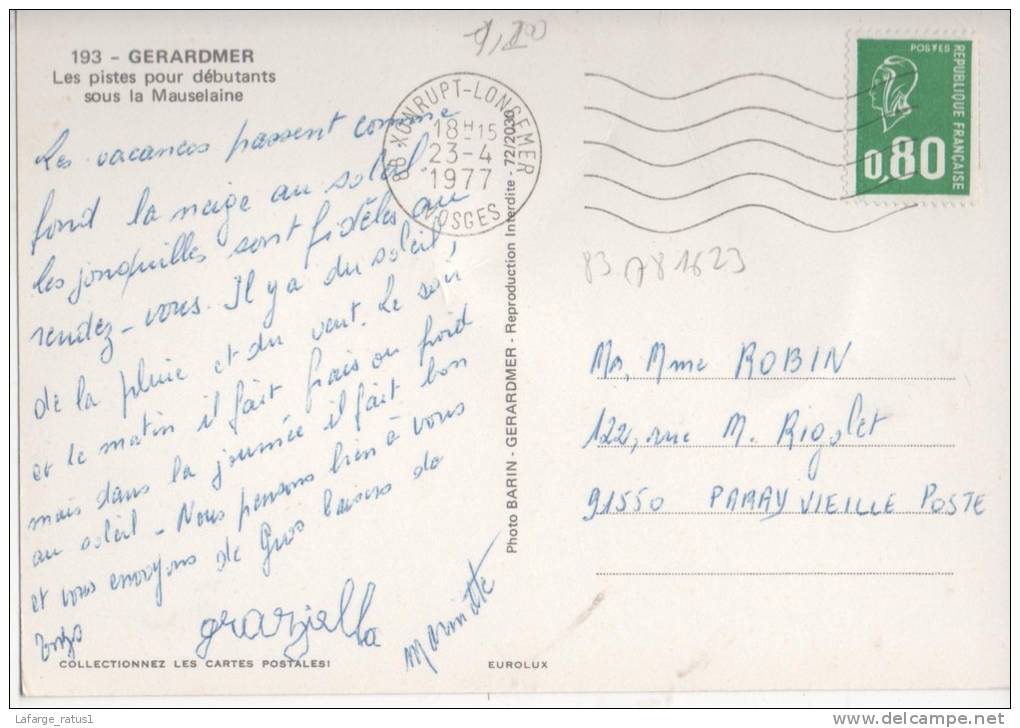 193 - GERARDMER
Les pistes pour débutants
sous la Mauselaine
Les vacances passent comme
fond la neige au soleil.
les jonquilles sont fidèles au
rendez-vous. Il y a du soleil,
de la pluie et du vent. Le soir
et le matin il fait frais ou froid
mais dans la journée il fait bon
au soleil - Nous pensons bien à vous
et vous envoyons de Gros baisers de
graziella
Marinette
COLLECTIONNEZ LES CARTES POSTALES!
EUROLUX
Photo BARIN - GERARDMER - Reproduction Interdite - 72/2030
88 XONRUPT-LONGEMER
18H15
23-4
1977
VOSGES
POSTES
REPUBLIQUE FRANÇAISE
0,80
83 A81623
Mr, Mme ROBIN
122, rue M. Rigolet
91550 PARAY VIEILLE POSTE
Lafarge_ratus1
www.delcampe.net